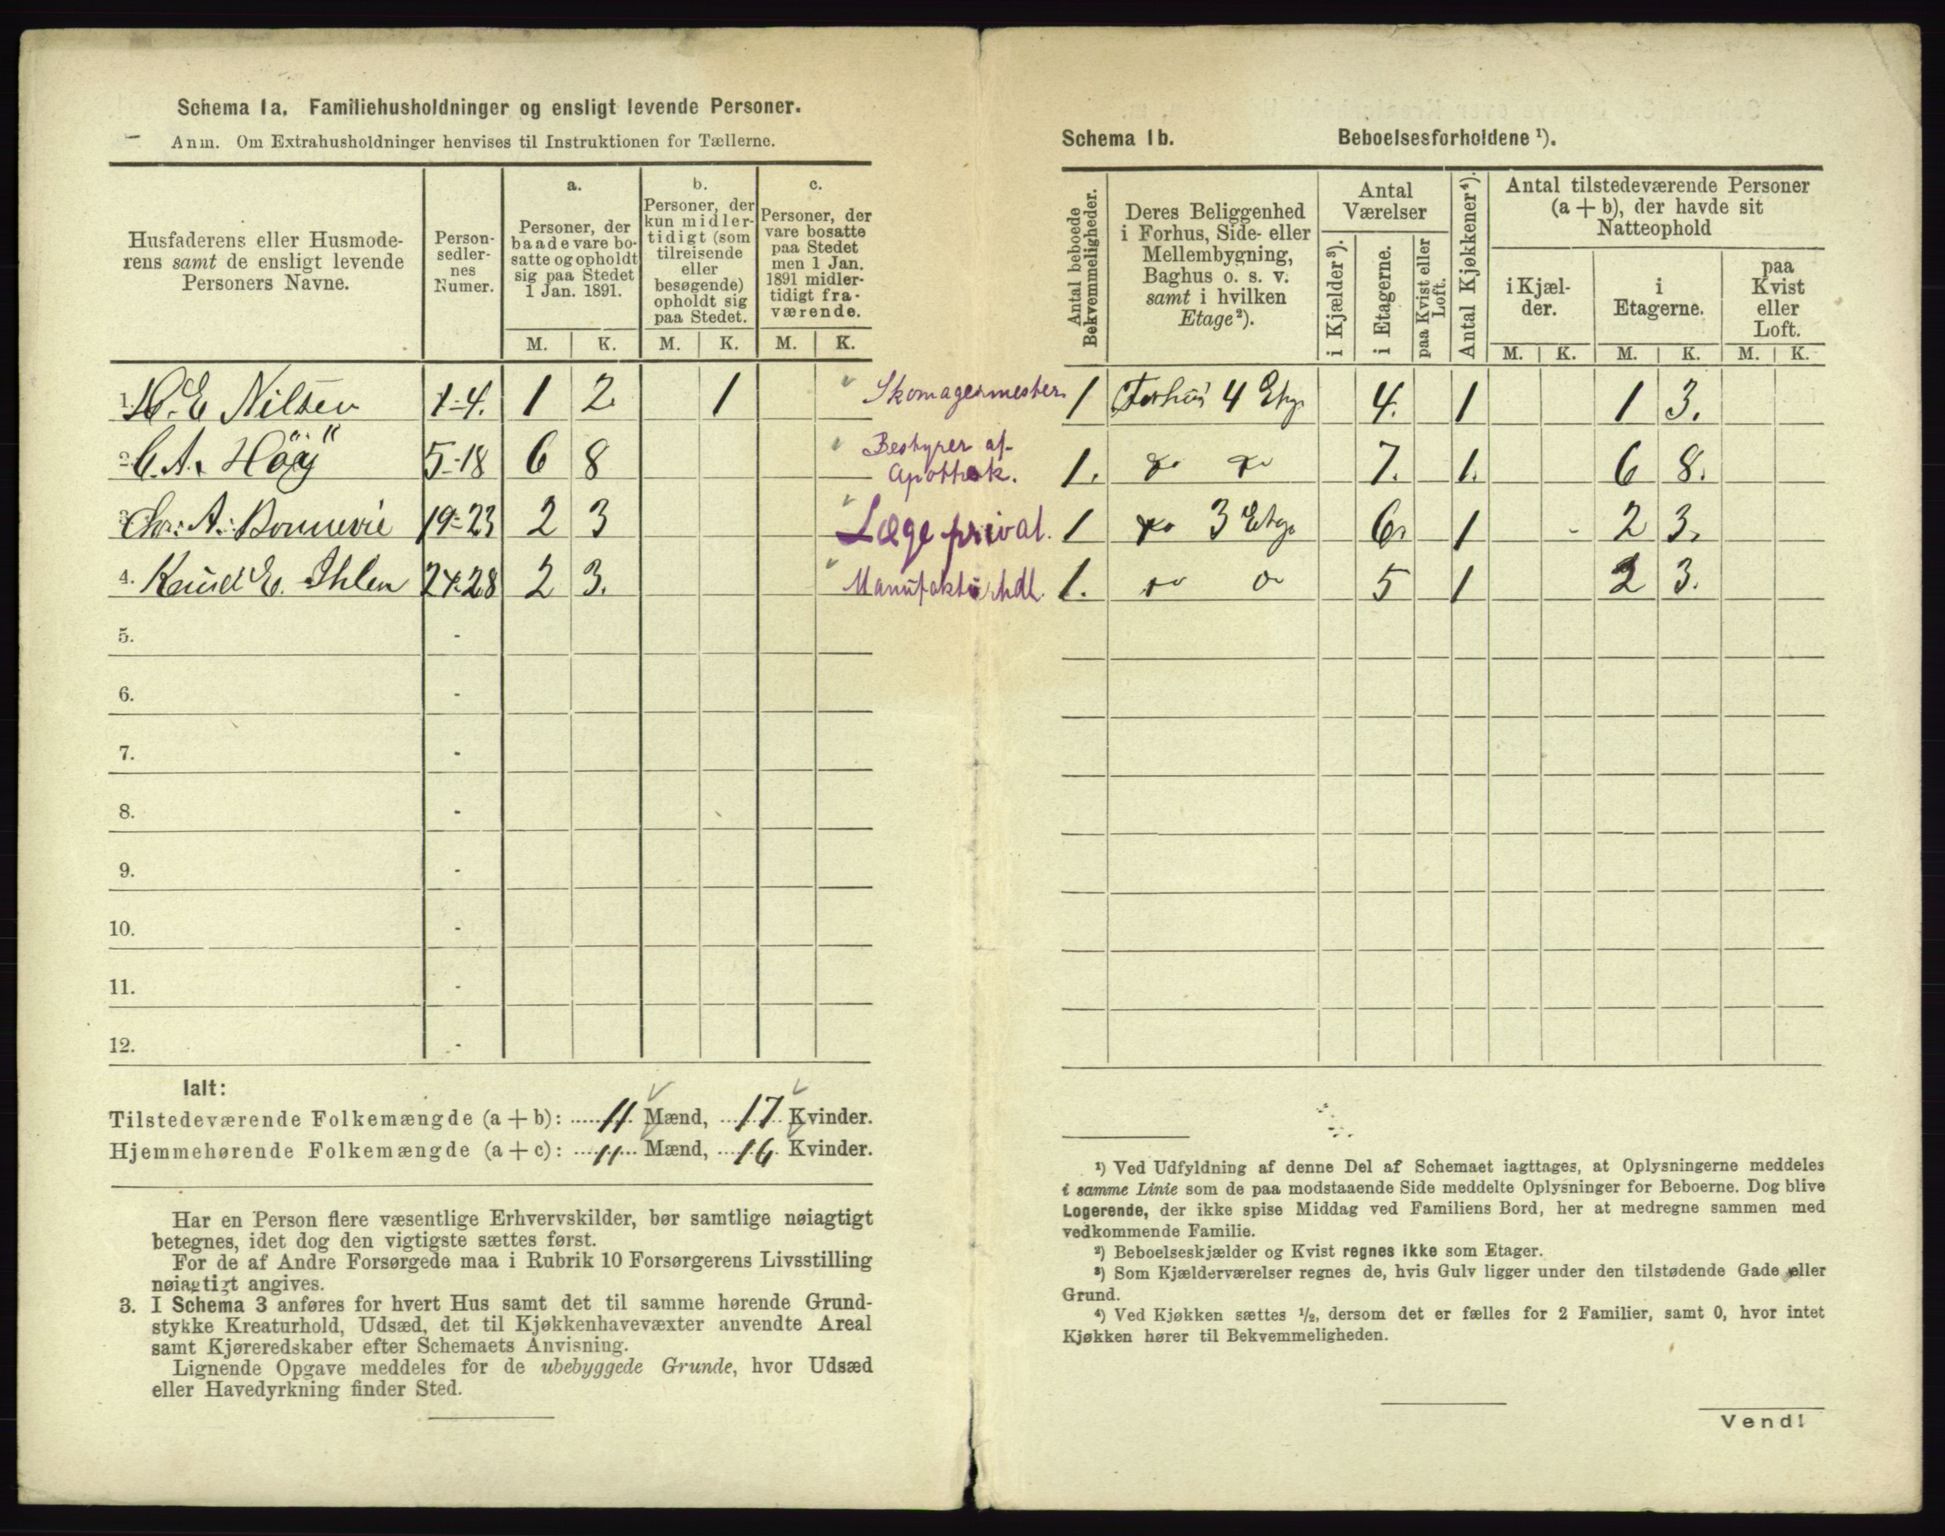 Schema 1a. Familiehusholdninger og ensligt levende Personer.
Anm. Om Extrahusholdninger henvises til Instruktionen for Tællerne.
Husfaderens eller Husmode-
rens samt de ensligt levende
Personers Navne.
Person-
sedler-
nes
Numer.
a.
Personer, der
baade vare bo-
satte og opholdt
sig paa Stedet
1 Jan. 1891.
b.
Personer, der
kun midler-
tidigt (som
tilreisende
eller
besøgende)
opholdt sig
paa Stedet.
c.
Personer, der
vare bosatte
paa Stedet
men 1 Jan.
1891 midler-
tidigt fra-
værende.
M. K. M. K. M. K.
1. H. E Nilsen 1-4. 1 2. 1 Skomagermester
2. C. A. Höÿ 5-18 6 8 Bestyrer af
Apothek.
3. Chr: A: Bonnevie 19-23 2 3 Læge privat.
4. Knud E. Ihlen 24-28 2 3. Manufakturhdl.
5. -
6. -
7. -
8. -
9. -
10. -
11. -
12. -
Ialt:
Tilstedeværende Folkemængde (a + b): 11 Mænd, 17 Kvinder.
Hjemmehørende Folkemængde (a + c): 11 Mænd, 16 Kvinder.
Har en Person flere væsentlige Erhvervskilder, bør samtlige nøiagtigt
betegnes, idet dog den vigtigste sættes først.
For de af Andre Forsørgede maa i Rubrik 10 Forsørgerens Livsstilling
nøiagtigt angives.
3. I Schema 3 anføres for hvert Hus samt det til samme hørende Grund-
stykke Kreaturhold, Udsæd, det til Kjøkkenhavevæxter anvendte Areal
samt Kjøreredskaber efter Schemaets Anvisning.
Lignende Opgave meddeles for de ubebyggede Grunde, hvor Udsæd
eller Havedyrkning finder Sted.
Schema 1b. Beboelsesforholdene ¹).
Antal beboede
Bekvemmeligheder.
Deres Beliggenhed
i Forhus, Side- eller
Mellembygning,
Baghus o. s. v.
samt i hvilken
Etage²).
Antal
Værelser
i Kjælder³).
i Etagerne.
paa Kvist eller
Loft.
Antal Kjøkkener⁴).
Antal tilstedeværende Personer
(a + b), der havde sit
Natteophold
i Kjæl-
der.
i
Etagerne.
paa
Kvist
eller
Loft.
M. K. M. K. M. K.
1 Forhus 4 Etg. 4. 1 1 3.
1. do do 7. 1. 6 8.
1 do 3 Etg. 6. 1 - 2 3.
1. do do 5 1 2 3.
¹) Ved Udfyldning af denne Del af Schemaet iagttages, at Oplysningerne meddeles
i samme Linie som de paa modstaaende Side meddelte Oplysninger for Beboerne. Dog blive
Logerende, der ikke spise Middag ved Familiens Bord, her at medregne sammen med
vedkommende Familie.
²) Beboelseskjælder og Kvist regnes ikke som Etager.
³) Som Kjælderværelser regnes de, hvis Gulv ligger under den tilstødende Gade eller
Grund.
⁴) Ved Kjøkken sættes ½, dersom det er fælles for 2 Familier, samt 0, hvor intet
Kjøkken hører til Bekvemmeligheden.
Vend!